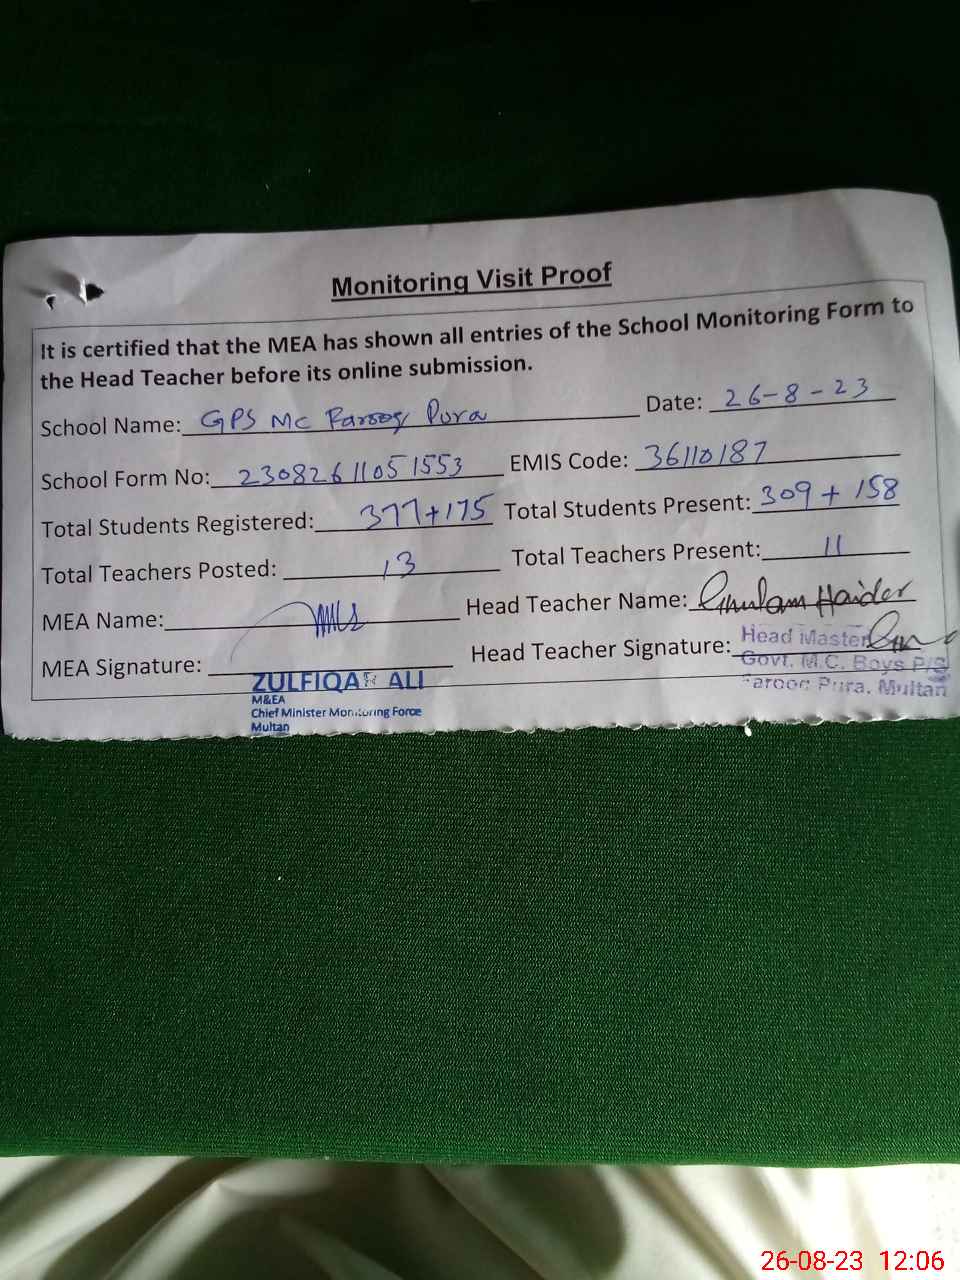 Monitoring Visit Proof
It is certified that the MEA has shown all entries of the School Monitoring Form to
the Head Teacher before its online submission.
School Name: GPS MC Farooq Pura Date: 26-8-23
School Form No: 23082611051553 EMIS Code: 36110187
Total Students Registered: 377+175 Total Students Present: 309 + 158
Total Teachers Posted: 13 Total Teachers Present: 11
MEA Name: Head Teacher Name: Ghulam Haider
MEA Signature: Head Teacher Signature: Head Master
Govt. M.C. Boys P/S
Farooq Pura, Multan
ZULFIQAR ALI
M&EA
Chief Minister Monitoring Force
Multan
26-08-23 12:06